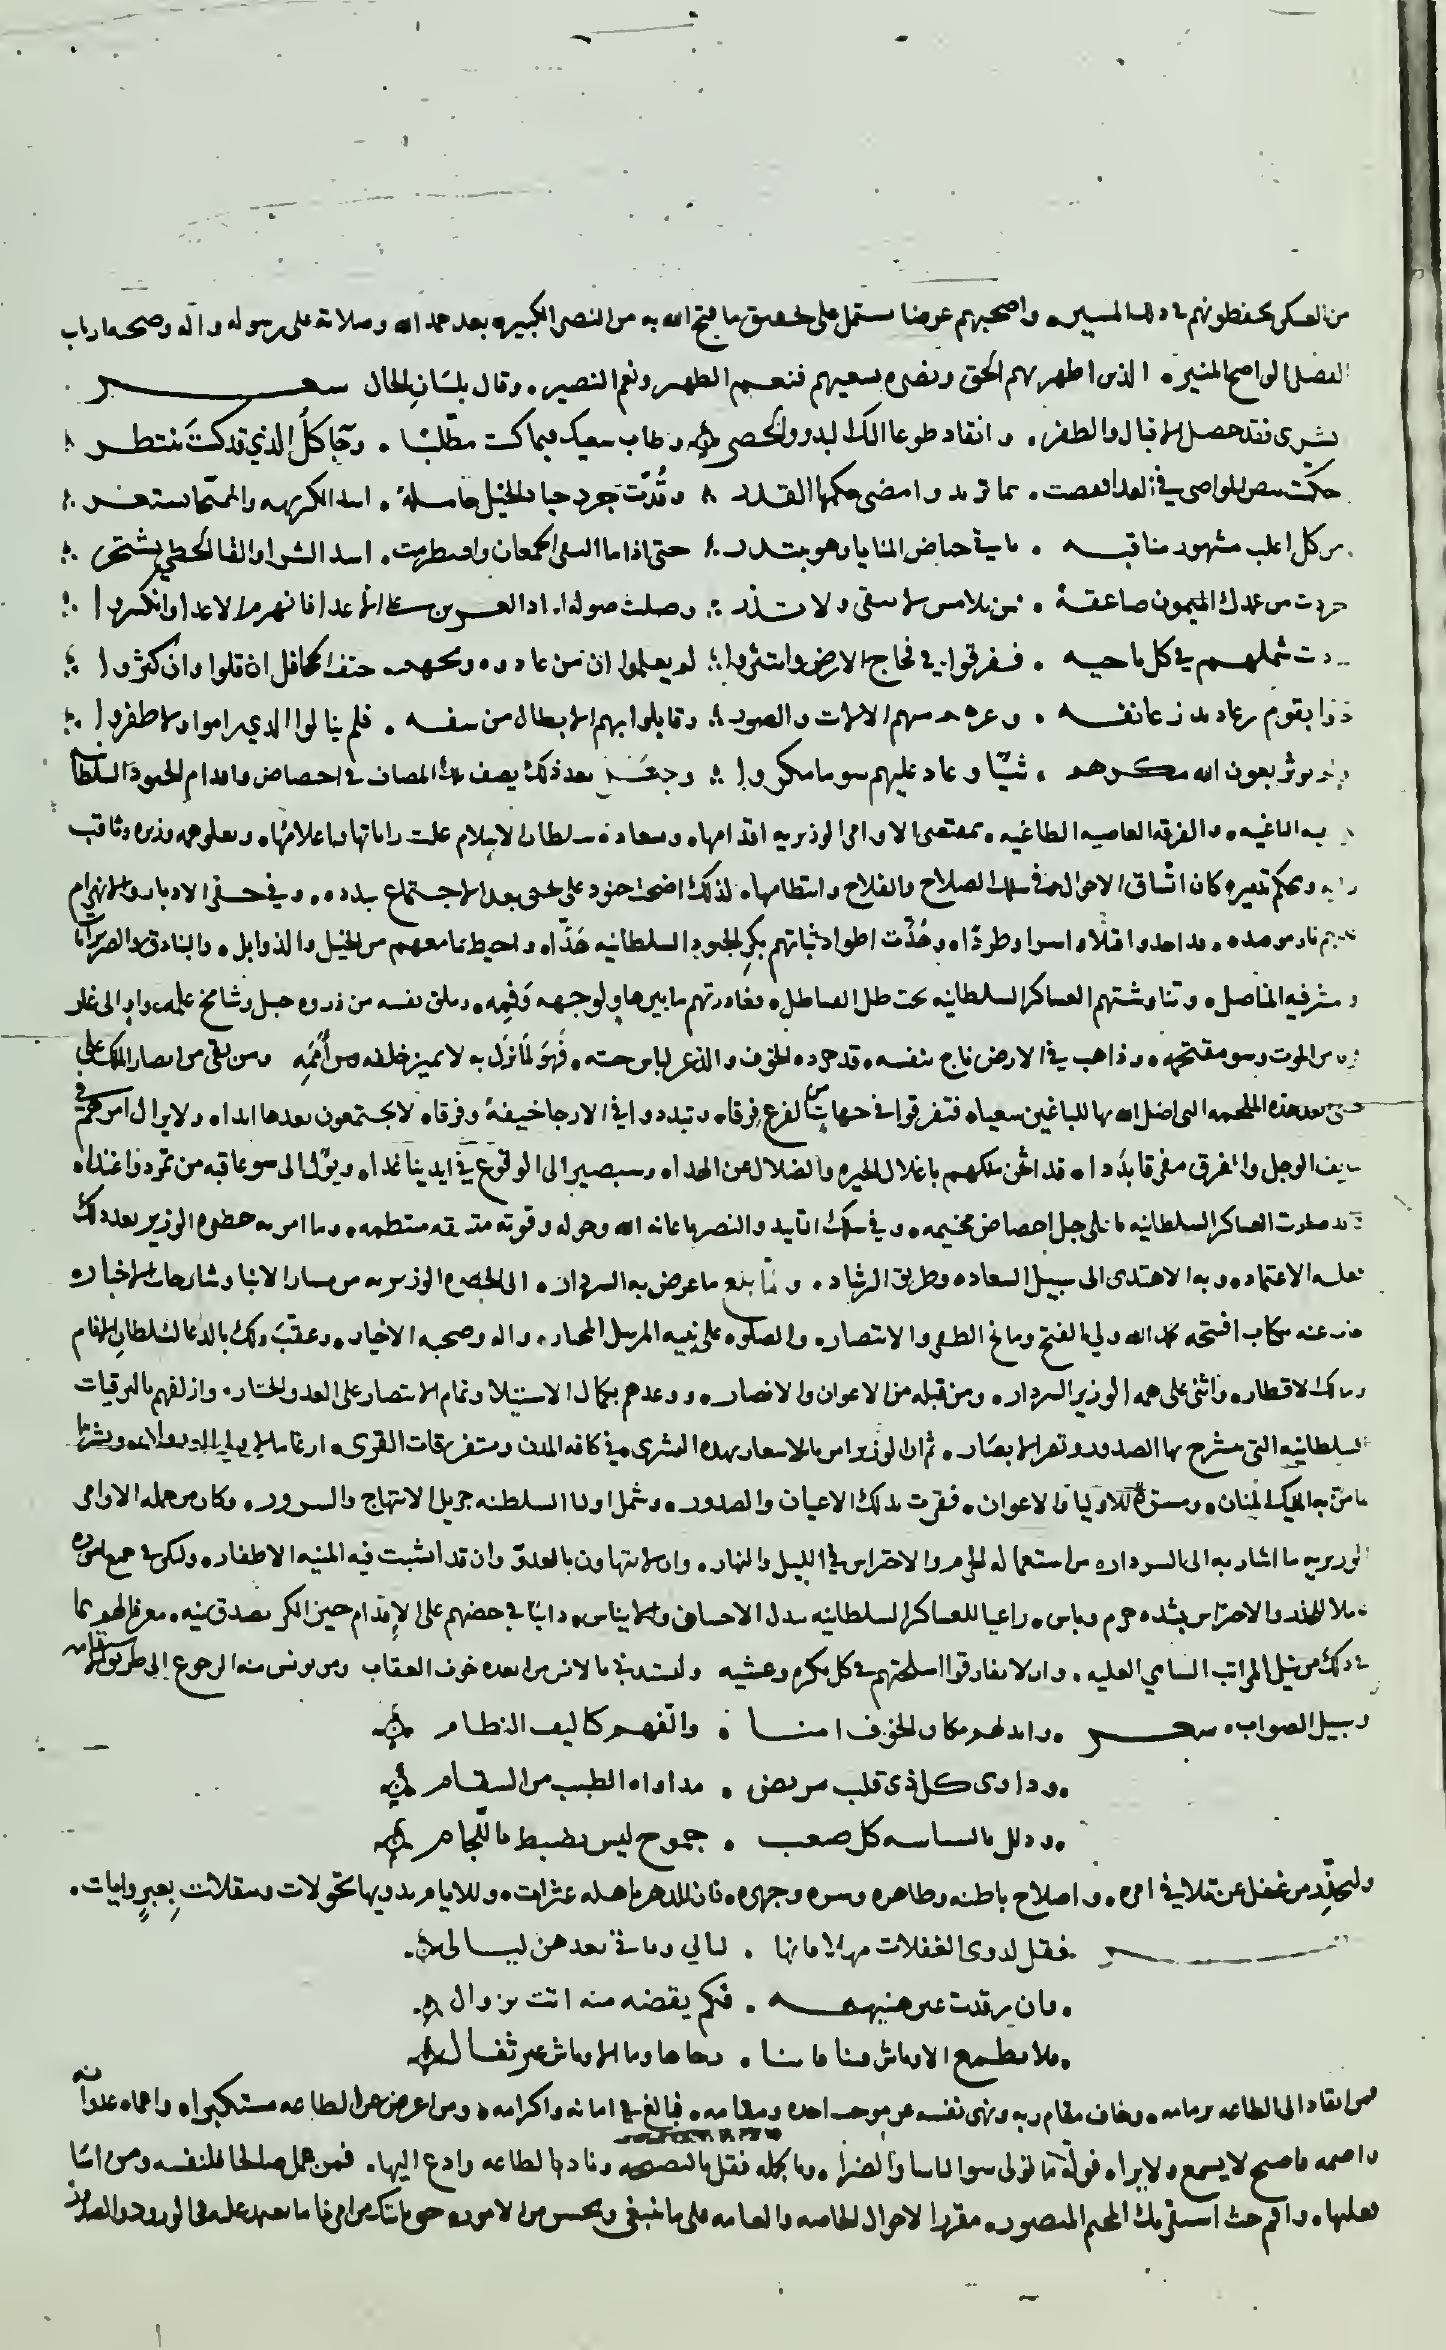 من العسكر يحفظونهم في ذلك المسير، واصحبهم عرضا يشتمل على تحقيق ما فتح الله به من النصر الكبير، بعد حمد الله وصلاته على رسوله واله وصحبه ارباب
الفضل الواضح المنير، الذين اظهر بهم الحق ونصره بسعيهم فنعم الظهير ونعم النصير، وقال بلسان الحال شعر
بشرى فقد حصل الاقبال والظفر، وانقاد طوعا اليك البدو والحضر وطاب سعيك فيما كنت مطلبا، وجا كل الذي قد كنت تنتظر
حكمت بيض المواصي في العدا فمضت، بما تريد وامضى حكمها القدر وقدت جرد جياد الخيل حاملة، اسد الكريهه
من كل اغلب مشهور مناقبه، ماضي حياض المنايا وهو يبتدر حتى اذا ما التقى الجمعان واضطربت، اسد الشرا والقنا الخطي يشتجر
جردت من عمدك الميمون صاعقة، من بلامس لا تبقي ولا تذر وصلت صولة اساد العرين على الاعدا فانهزم الاعدا وانكسروا
شملهم في كل ناحيه، فتفرقوا في فجاج الارض وانتثروا لم يعلموا ان من عادوه وجههم حتف الجحافل ان قلوا وان كثروا
بقوم زعانفه، وقابلوا بهم الابطال من سفه، فلم ينالوا الذي راموا ولا ظفروا
يوثر بعون الله مكرهم، شيئا وعاد عليهم سو ما مكروا وجعل بعد ذلك يصف المصاف في احصاص واقدام الجنود السلطانيه
الباغيه، والفرقه العاصيه الطاغيه، بمقتضى الاوامر الوزيريه اقدامها، وسعادة سلطان الاسلام علت راياتها واعلامها، وبعلو همه وزيره وثاقب
رايه وحكم تدبيره كان اتساق الاحوال في سلك الصلاح والفلاح وانتظامها، لذلك اضحت جنود بعد الاجتماع بدده، وفي حقير الادبار والانهزام
اخذوا قتلا واسرا وطردا، وهدت اطواد ثباتهم بكر الجنود السلطانيه هدا، واحيط بما معهم من الخيل والذوابل، والبنادق
ومشرفيه المناصل، وتناوشتهم العساكر السلطانيه تحت ظل القساطل، فغادرتهم ما بين هاو لوجهه وفمه، وملق نفسه من ذروه جبل وشامخ علمه، واو الى غار
من الموت وسو مقتحمه، وذاهب في الارض ناج بنفسه، قد جرده الخوف والذعر لباس حسه، فهو لما نزل به لا يميز خلفه من امامه ومن بقي من انصار الملك على
بعد هذه الملحمه التي اضل الله بها للباغين سعيا، فتفرقوا في جهات الفزع فرقا، وتبددوا في الارجا خيفة وفرقا، لا يجتمعون بعدها ابدا، ولا يزال امرهم في
الوجل والفرق مفرقا بددا، قد اثخن ملكهم باغلال الحيره والضلال عن الهدا، وسيصير الى الوقوع في ايدينا غدا، ويؤل الى سو عاقبه من تمرد واعتدا،
العساكر السلطانيه باعلى جبل احصاص مخيمه، وفي سلك التاييد والنصر باعانه الله وحوله وقوته متسقه منتظمه، وما امر به حضره الوزير بعد ذلك
فعليه الاعتماد، وبه الاهتدى الى سبيل السعاده وطريق الرشاد، ولما بلغ ما عرض به السردار، الى الحضره الوزيريه من سار الانبا وشارحات الاخبار،
عنه بكتاب افتتحه بحمد الله ولي الفتح ومانح الظفر والانتصار، والصلوه على نبيه المرسل المختار، واله وصحبه الاخيار، وعقب ذلك بالدعا لسلطان الانام
ومالك الاقطار، واثنى على همه الوزير السردار، ومن قبله من الاعوان والانصار، ووعدهم بكمال الاستيلا وتمام الانتصار على العدو الختار، وازلفهم بالترقيات
السلطانيه التي تنشرح بها الصدور وتقر الابصار، ثم ان الوزير امر بالاشعار بهذه البشرى، في كافه المدن ومتفرقات القرى، ارغاما
ما من به المليك المنان، ومسرة للاوليا والاعوان، فقرت بذلك الاعيان والصدور، وشمل اوليا السلطنه جزيل الابتهاج والسرور، وكان من جمله الاوامر
الوزيريه ما اشار به الى السردار، من استعماله للحزم والاحتراس في الليل والنهار، وان لا يتهاون بالعدو وان قد انشبت فيه المنيه الاظفار، وليكن في جميع اموره
والاحتراس بشده حزم وباس، راعيا للعساكر السلطانيه ببذل الاحسان والايناس، دائبا في حضهم على الاقدام حين الكر بصدق نيه، معرفا لهم بما
في ذلك من نيل المراتب الساميه العليه، وان لا يفارقوا اسلحتهم في كل بكره وعشيه وليستدني بالانس من ابعده خوف العقاب ومن يونس منه الرجوع الى طريق
وسبيل الصواب، شعر، وابدلهم مكان الخوف امنا، والفهم كاليف النظام
، وداوى كل ذي قلب مريض، مداواه الطبيب من السقام
، وذلل بالسياسه كل صعب، جموح ليس يضبط باللجام
وليحذر من غفل عن تلافي امره، واصلاح باطنه وظاهره وسره وجهره، فان للدهر باهله عثرات، وللايام بذويها تحولات ومنقلبات بعبر وايات،
فقل لذوي الغفلات مهلا فانها، ليالي وياتي بعدهن ليالي
، وان رقدت عين، فكم يقضه منه اتت بزوال
، ولا يطمع الاوباش
فمن انقاد الى الطاعه بزمامه، وخاف مقام ربه ونهى نفسه عن موجب، فبالغ في امانه واكرامه، ومن اعرض عن الطاعه مستكبرا، واعماه عدوانه
واصمه فاصبح لا يسمع ولا يرا، فوله ما تولى سو الباسا والضرا، وبالجمله فقل بالنصيحه وناد بالطاعه وادع اليها، فمن عمل صالحا فلنفسه ومن اسا
فعليها، واقم حيث استقر بك المخيم المنصور، مقررا لاحوال الخاصه والعامه على ما ينبغي ويحسن من الامور، حتى ياتيك من امرنا ما تعتمد عليه في الورود والصدور